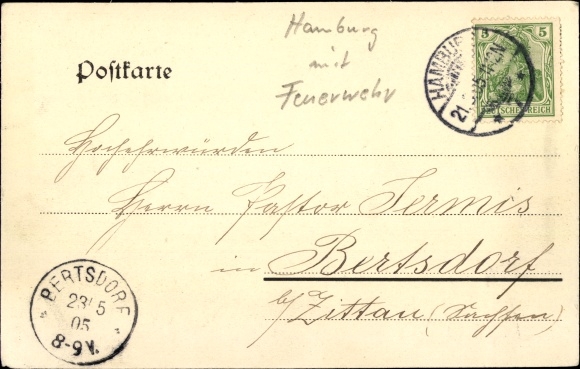 Hamburg
mit
Feuerwehr
Postkarte
5 5
DEUTSCHES REICH
HAMBURG
21.
Hochehrwürden
Herrn Pastor Jermis
in Bertsdorf
b/Zittau (Sachsen)
BERTSDORF
23/5
05
8-9V.